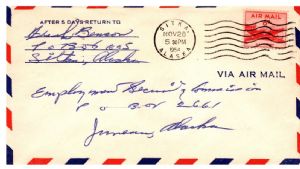 AFTER 5 DAYS RETURN TO
Benson
P O Box 695
Sitka, Alaska
SITKA
NOV 26
5 30 PM
1954
ALASKA
AIR MAIL
VIA AIR MAIL
Employment Security Commission
P O BOX 2661
Juneau, Alaska